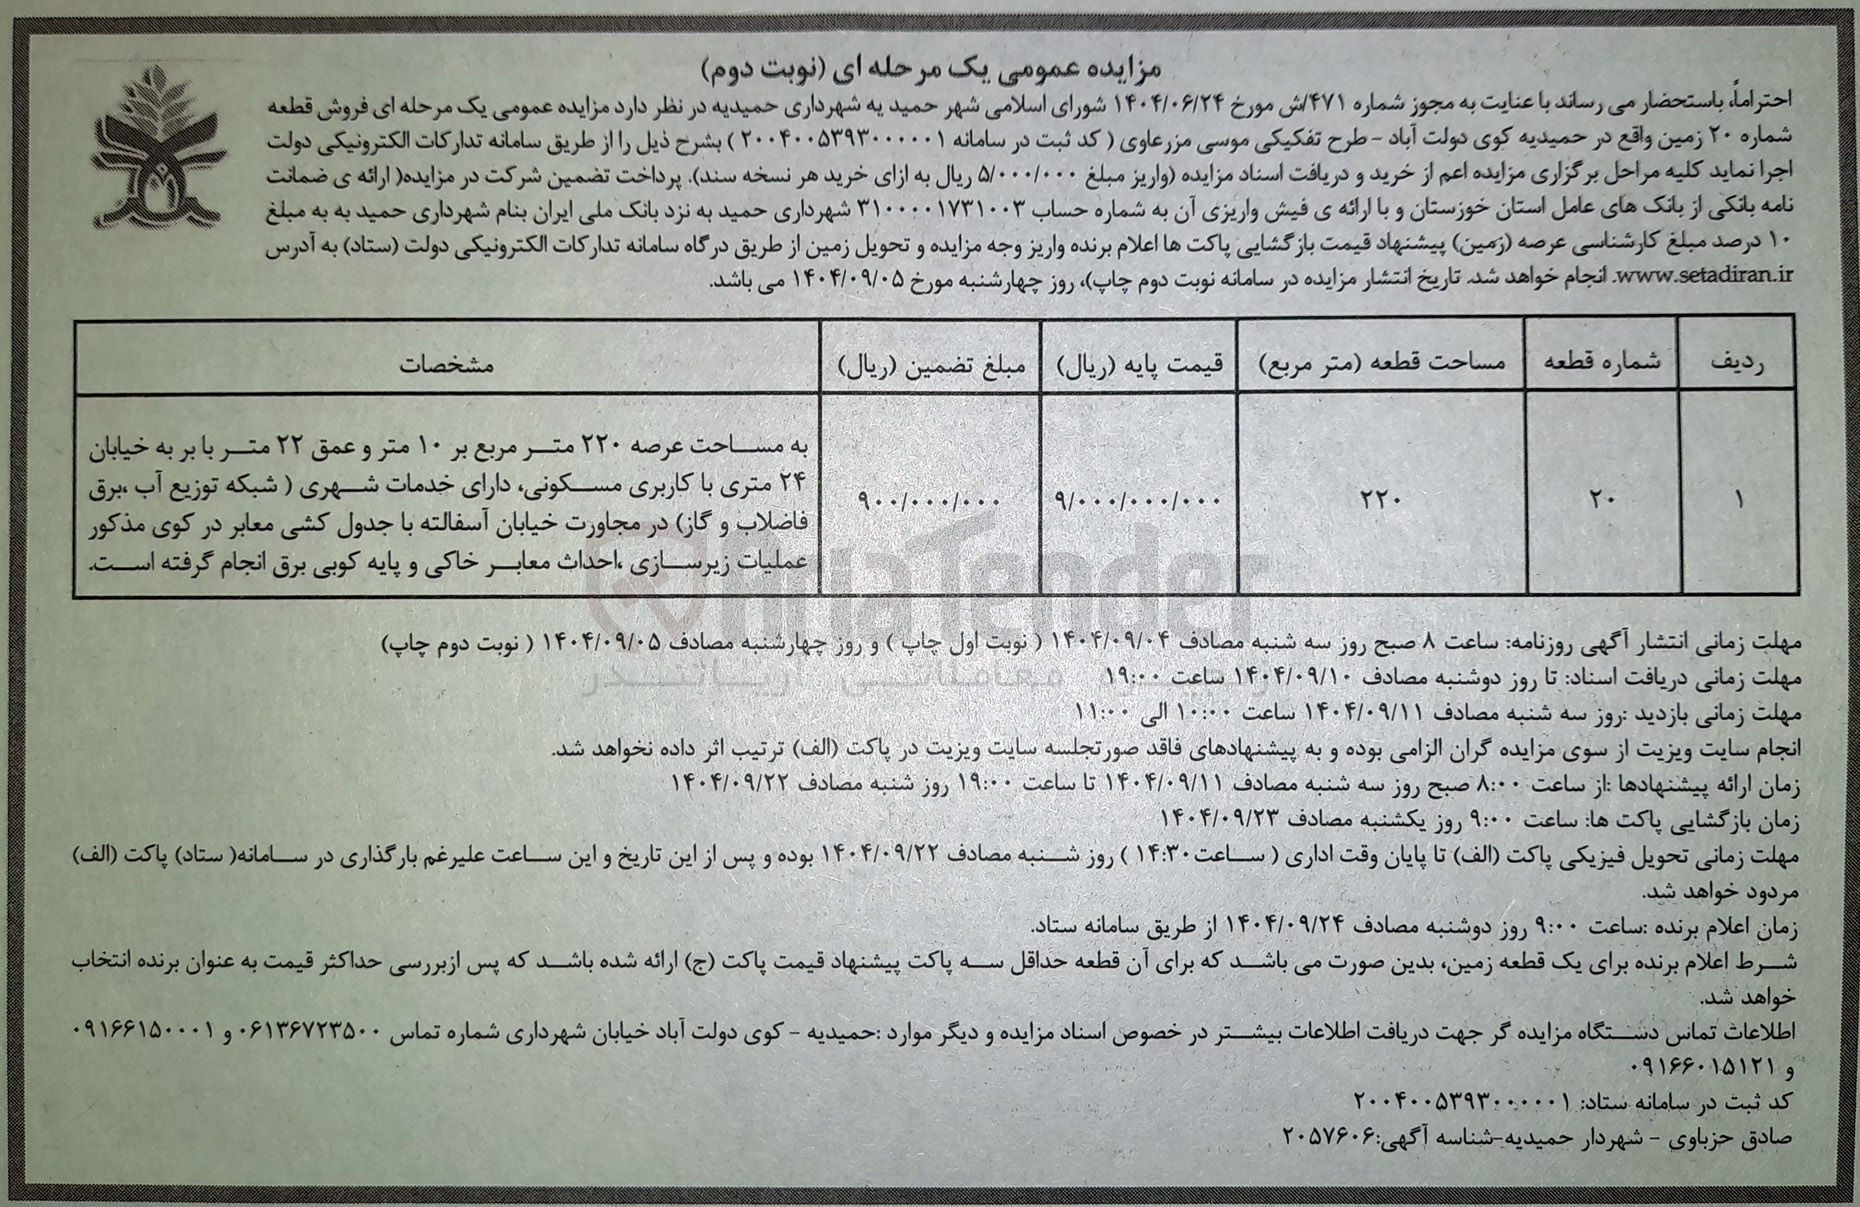 مزایده عمومی یک مرحله ای (نوبت دوم)
احتراماً، باستحضار می رساند با عنایت به مجوز شماره ۴۷۱/ش مورخ ۱۴۰۴/۰۶/۲۴ شورای اسلامی شهر حمید یه شهرداری حمیدیه در نظر دارد مزایده عمومی یک مرحله ای فروش قطعه
شماره ۲۰ زمین واقع در حمیدیه کوی دولت آباد - طرح تفکیکی موسی مزرعاوی ( کد ثبت در سامانه ۲۰۰۴۰۰۵۳۹۳۰۰۰۰۰۱ ) بشرح ذیل را از طریق سامانه تدارکات الکترونیکی دولت
اجرا نماید کلیه مراحل برگزاری مزایده اعم از خرید و دریافت اسناد مزایده (واریز مبلغ ۵/۰۰۰/۰۰۰ ریال به ازای خرید هر نسخه سند). پرداخت تضمین شرکت در مزایده( ارائه ی ضمانت
نامه بانکی از بانک های عامل استان خوزستان و یا ارائه ی فیش واریزی آن به شماره حساب ۳۱۰۰۰۰۱۷۳۱۰۰۳ شهرداری حمید یه نزد بانک ملی ایران بنام شهرداری حمید یه به مبلغ
۱۰ درصد مبلغ کارشناسی عرصه (زمین) پیشنهاد قیمت بازگشایی پاکت ها اعلام برنده واریز وجه مزایده و تحویل زمین از طریق درگاه سامانه تدارکات الکترونیکی دولت (ستاد) به آدرس
www.setadiran.ir. انجام خواهد شد. تاریخ انتشار مزایده در سامانه نوبت دوم چاپ)، روز چهارشنبه مورخ ۱۴۰۴/۰۹/۰۵ می باشد.
ردیف شماره قطعه مساحت قطعه (متر مربع) قیمت پایه (ریال) مبلغ تضمین (ریال) مشخصات
۱ ۲۰ ۲۲۰ ۹/۰۰۰/۰۰۰/۰۰۰ ۹۰۰/۰۰۰/۰۰۰
به مساحت عرصه ۲۲۰ متر مربع بر ۱۰ متر و عمق ۲۲ متر با بر به خیابان
۲۴ متری با کاربری مسکونی، دارای خدمات شهری ( شبکه توزیع آب ،برق
فاضلاب و گاز) در مجاورت خیابان آسفالته با جدول کشی معابر در کوی مذکور
عملیات زیرسازی ،احداث معابر خاکی و پایه کوبی برق انجام گرفته است.
AriaTender
مهلت زمانی انتشار آگهی روزنامه: ساعت ۸ صبح روز سه شنبه مصادف ۱۴۰۴/۰۹/۰۴ ( نوبت اول چاپ ) و روز چهارشنبه مصادف ۱۴۰۴/۰۹/۰۵ ( نوبت دوم چاپ)
مهلت زمانی دریافت اسناد: تا روز دوشنبه مصادف ۱۴۰۴/۰۹/۱۰ ساعت ۱۹:۰۰
مهلت زمانی بازدید :روز سه شنبه مصادف ۱۴۰۴/۰۹/۱۱ ساعت ۱۰:۰۰ الی ۱۱:۰۰
انجام سایت ویزیت از سوی مزایده گران الزامی بوده و به پیشنهادهای فاقد صورتجلسه سایت ویزیت در پاکت (الف) ترتیب اثر داده نخواهد شد.
زمان ارائه پیشنهادها :از ساعت ۸:۰۰ صبح روز سه شنبه مصادف ۱۴۰۴/۰۹/۱۱ تا ساعت ۱۹:۰۰ روز شنبه مصادف ۱۴۰۴/۰۹/۲۲
زمان بازگشایی پاکت ها: ساعت ۹:۰۰ روز یکشنبه مصادف ۱۴۰۴/۰۹/۲۳
مهلت زمانی تحویل فیزیکی پاکت (الف) تا پایان وقت اداری ( ساعت۱۴:۳۰ ) روز شنبه مصادف ۱۴۰۴/۰۹/۲۲ بوده و پس از این تاریخ و این ساعت علیرغم بارگذاری در سامانه( ستاد) پاکت (الف)
مردود خواهد شد.
زمان اعلام برنده :ساعت ۹:۰۰ روز دوشنبه مصادف ۱۴۰۴/۰۹/۲۴ از طریق سامانه ستاد.
شرط اعلام برنده برای یک قطعه زمین، بدین صورت می باشد که برای آن قطعه حداقل سه پاکت پیشنهاد قیمت پاکت (ج) ارائه شده باشد که پس ازبررسی حداکثر قیمت به عنوان برنده انتخاب
خواهد شد.
اطلاعات تماس دستگاه مزایده گر جهت دریافت اطلاعات بیشتر در خصوص اسناد مزایده و دیگر موارد :حمیدیه - کوی دولت آباد خیابان شهرداری شماره تماس ۰۶۱۳۶۷۲۳۵۰۰ و ۰۹۱۶۶۱۵۰۰۰۱
و ۰۹۱۶۶۰۱۵۱۲۱
کد ثبت در سامانه ستاد: ۲۰۰۴۰۰۵۳۹۳۰۰۰۰۰۱
صادق حزباوی - شهردار حمیدیه-شناسه آگهی:۲۰۵۷۶۰۶